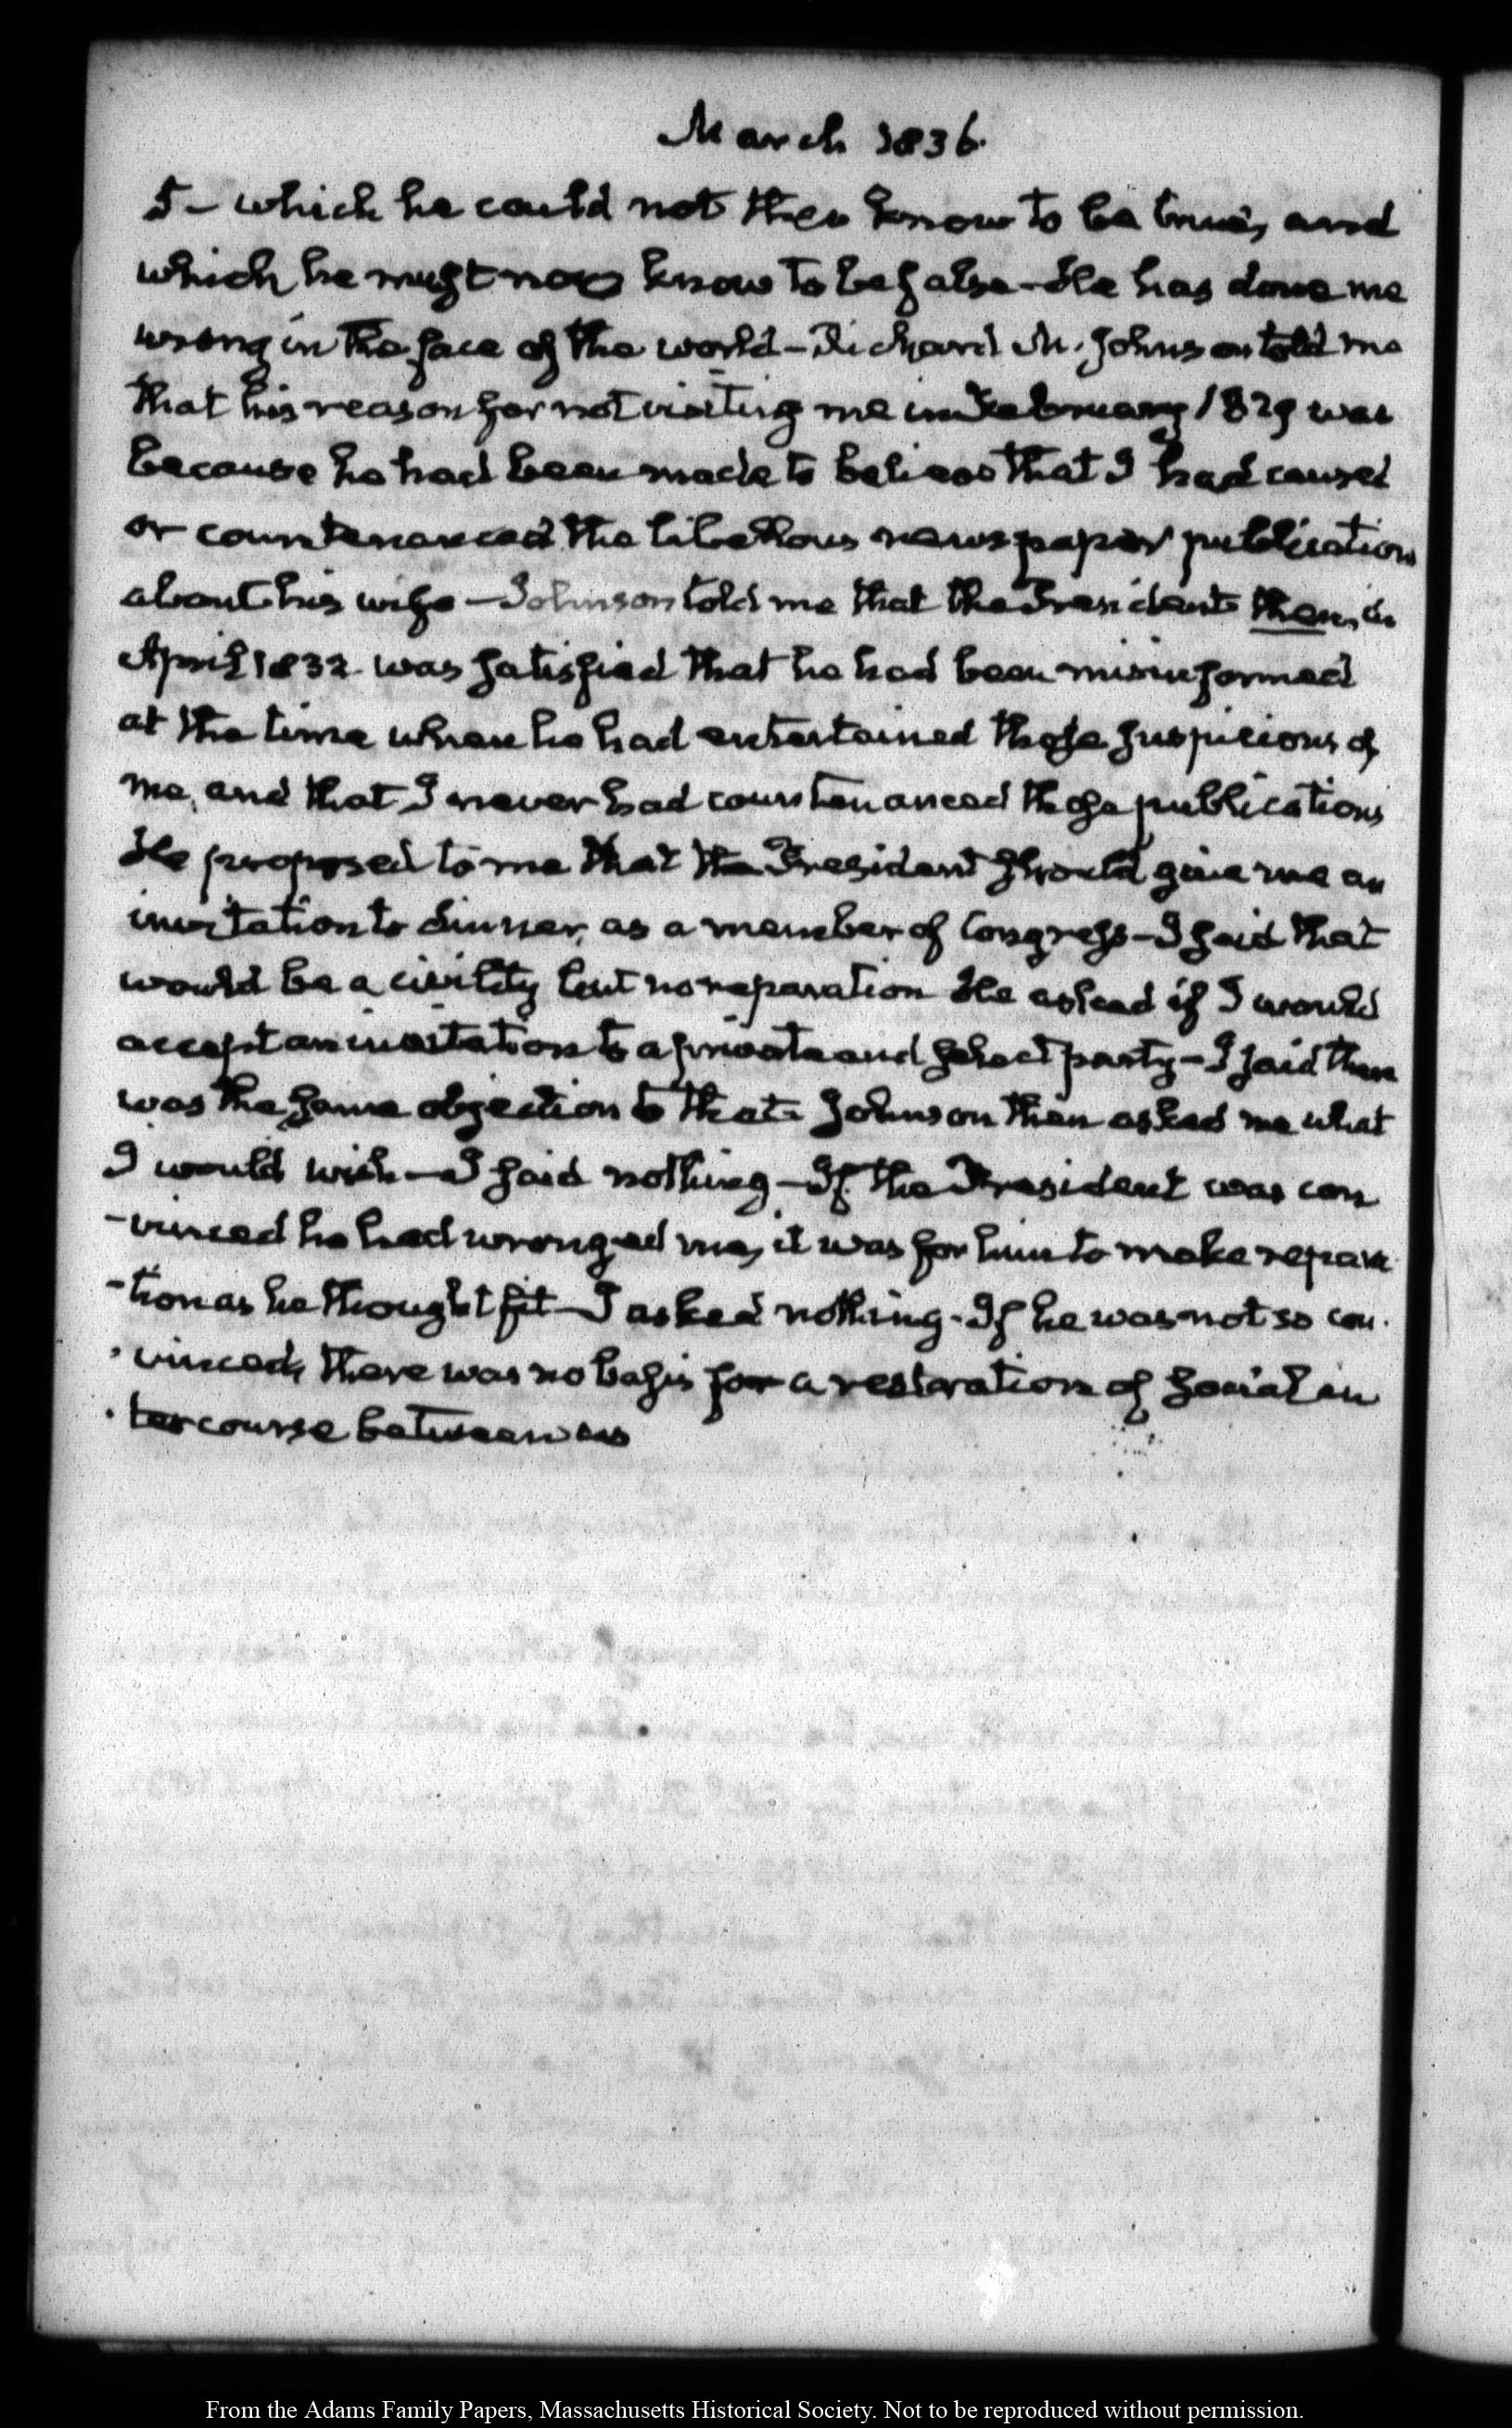 March 1836.
5 – which he could not then know to be true, and
which he must now know to be false – He has done me
wrong in the face of the world – Richard M. Johnson told me
that his reason for not visiting me in February 1829 was
because he had been made to believe that I had caused
or countenanced the libellous newspaper publications
about his wife – Johnson told me that the President then, in
April 1832. was satisfied that he had been misinformed
at the time when he had entertained those suspicions of
me, and that I never had countenanced those publications
He proposed to me that the President should give me an
invitation to dinner, as a member of Congress – I said that
would be a civility but no reparation He asked if I would
accept an invitation to a private and select party – I said there
was the same objection to that. Johnson then asked me what
I would wish – I said nothing – If the President was con
-vinced he had wronged me, it was for him to make repara
-tion as he thought fit – I asked nothing. If he was not so con.
-vinced, there was no basis for a restoration of social in
-tercourse between us
From the Adams Family Papers, Massachusetts Historical Society. Not to be reproduced without permission.